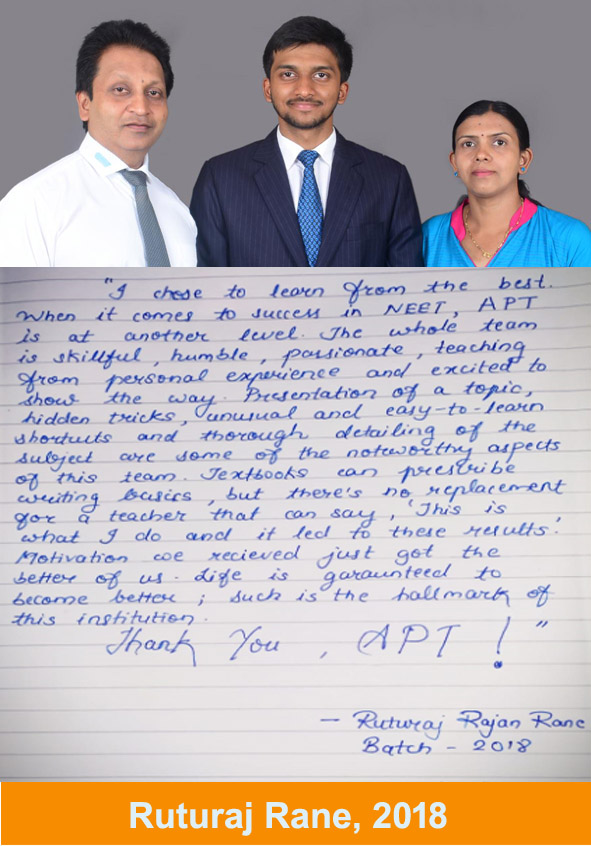 "I chose to learn from the best.
When it comes to success in NEET, APT
is at another level. The whole team
is skillful, humble, passionate, teaching
from personal experience and excited to
show the way. Presentation of a topic,
hidden tricks, unusual and easy-to-learn
shortcuts and thorough detailing of the
subject are some of the noteworthy aspects
of this team. Textbooks can prescribe
writing basics, but there's no replacement
for a teacher that can say, 'This is
what I do and it led to these results.'
Motivation we recieved just got the
better of us. Life is garaunteed to
become better ; such is the hallmark of
this institution.
Thank You, APT !"
— Ruturaj Rajan Rane
Batch - 2018
Ruturaj Rane, 2018